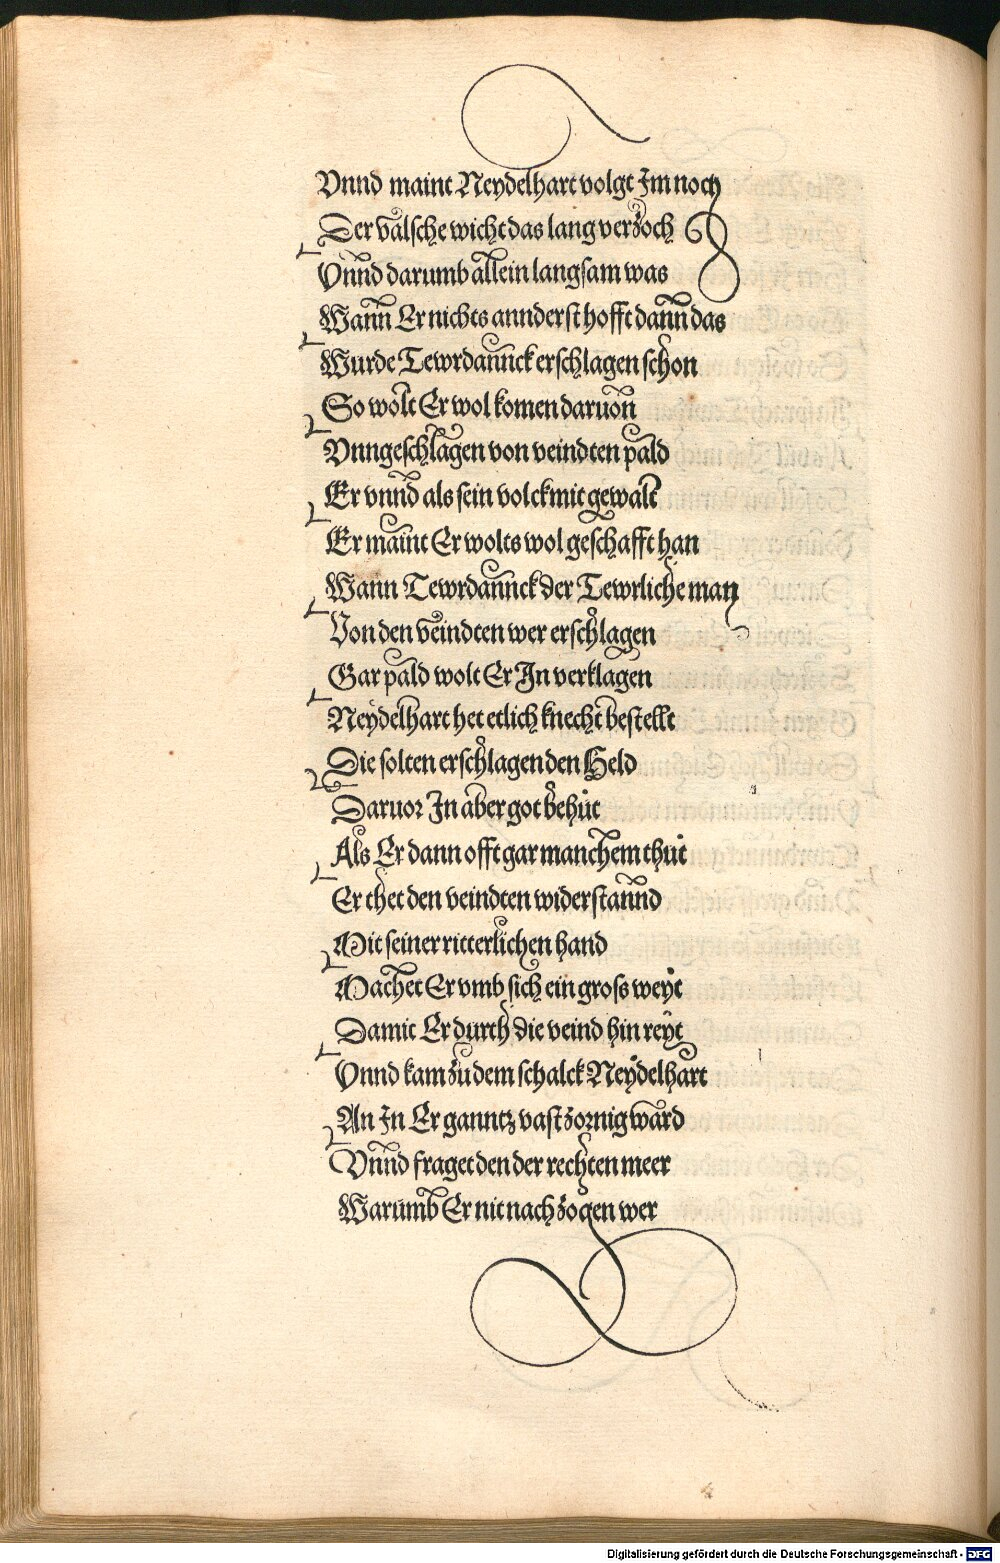 Vnnd maint Neydelhart volgt Im noch
Der välsche wicht das lang verzoch
Vnnd darumb allein langsam was
Wann Er nichts annderst hofft dann das
Wurde Tewrdannck erschlagen schon
So wolt Er wol komen daruon
Vnngeschlagen von veindten pald
Er vnnd als sein volck mit gewalt
Er maint Er wolts wol geschafft han
Wann Tewrdannck der Tewrliche man
Von den veindten wer erschlagen
Gar pald wolt Er In verklagen
Neydelhart het etlich knecht bestellt
Die solten erschlagen den Held
Daruor In aber got behüt
Als Er dann offt gar manchem thüt
Er thet den veindten widerstannd
Mit seiner ritterlichen hand
Machet Er vmb sich ein gross weyt
Damit Er durch die veind hin reyt
Vnnd kam zu dem schalck Neydelhart
An In Er ganntz vast zornig ward
Vnnd fraget den der rechten meer
Warumb Er nit nach zogen wer
Digitalisierung gefördert durch die Deutsche Forschungsgemeinschaft - DFG